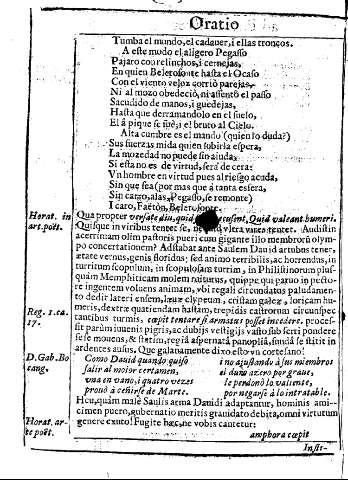 Oratio
Tumba el mundo, el cadauer, i ellas troncos.
A este modo el aligero Pegasso
Pajaro con relinchos, i cernejas,
En quien Belerofonte hasta el Ocaso
Con el viento veloz corriò parejas,
Ni al mozo obedeciò, ni assentò el passo
Sacudido de manos, i guedejas,
Hasta que derramandolo en el suelo,
El à pique se fuè, i el bruto al Cielo.
Alta cumbre es el mundo (quien lo duda?)
Sus fuerzas mida quien subirla espera,
La mozedad no puede sin aiuda,
Si esta no es de virtud, serà de cera:
Vn hombre en virtud pues al riesgo acuda,
Sin que sea (por mas que à tanta esfera,
Sin carro, alas, Pegaso, se remonte)
Icaro, Faëton, Belerofonte.
Horat. in
art. poët.
Qua propter versate diu, quid recusent, Quid valeant humeri.
Quisque in viribus tentet se, ultra vires tentet. Audistin
acerrimam olim pastoris pueri cum gigante illo membrorũ olym
po concertationem? Adstabat ante Saulem Dauid artubus tener,
ætate vernus, genis floridus: sed animo terribilis, ac horrendus, in
turritum scopulum, in scopulosam turrim, in Philistinorum plus
quàm Memphiticam molem naiturus, quippe qui paruo in pecto
re ingentem voluens animam, vbi regali circundatus paludamen-
to dedit lateri ensem, læuæ clypeum, cristam galeæ, loricam hu-
Reg. 1. ca.
17.
meris, dextræ quatiendam hastam, trepidis castrorum circunspec
tantibus turmis, cœpit tentare si armatus posset incedere. proces-
sit parùm iuuenis pigris, ac dubijs vestigijs vasto sub ferri pondere
se se mouens, & stetim, regià aspernatà panoplià, fundà se stitit in
ardentes ausus. Que galanamente dixo esto vn cortesano!
D. Gab. Bo
cang.
Como Dauid quando quiso
salir al maior certamen,
vna en vano, i quatro vezes
prouò à ceñirse de Marte.
i no ajustando à sus miembros
el duro azero por graue,
le perdonò lo valiente,
por negarse à lo intratable.
Heu, quàm malè Saulis arma Dauidi adaptantur, hominis ami-
cimen puero, gubernatio meritis granidato debita, omni virtutum
Horat. ar-
te poët.
genere exuto! Fugite hæc, ne vobis cantetur:
amphora cœpit
Insti-